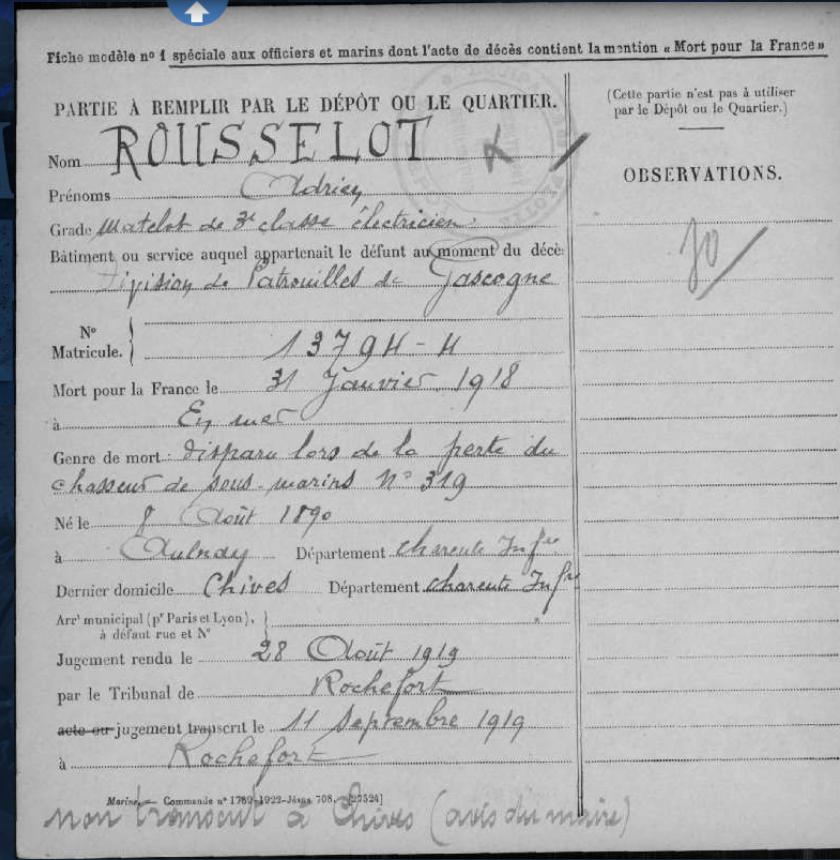 Fiche modèle nº 1 spéciale aux officiers et marins dont l'acte de décès contient la mention « Mort pour la France »
PARTIE À REMPLIR PAR LE DÉPÔT OU LE QUARTIER.
Nom ROUSSELOT
Prénoms Adrien
Grade Matelot de 3e classe électricien
Bâtiment ou service auquel appartenait le défunt au moment du décè
Division de Patrouilles de Gascogne
Nº
Matricule. 13794-4
Mort pour la France le 31 Janvier 1918
à En mer
Genre de mort disparu lors de la perte du
chasseur de sous-marins Nº 319
Né le 8 Août 1890
à Aulnay Département Charente Infre
Dernier domicile Chives Département Charente Infre
Arrt municipal (pr Paris et Lyon),
à défaut rue et Nº
Jugement rendu le 28 Août 1919
par le Tribunal de Rochefort
acte ou jugement transcrit le 11 Septembre 1919
à Rochefort
Marine. — Commande nº 1789-1922-Jésus 708. [27524]
non transcrit à Chives (avis du maire)
(Cette partie n'est pas à utiliser
par le Dépôt ou le Quartier.)
OBSERVATIONS.